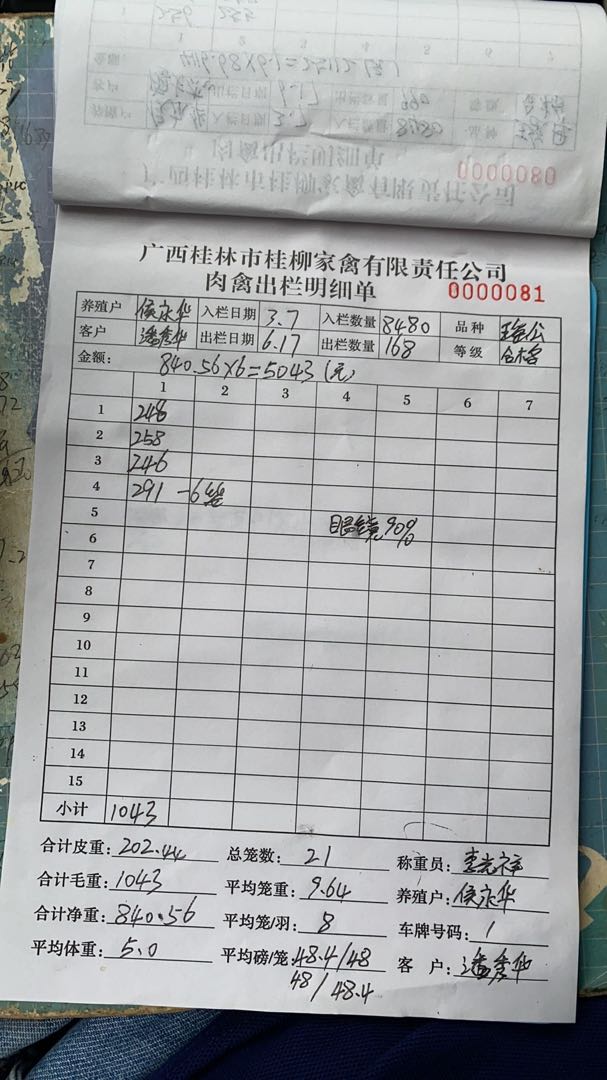 0000080
广西桂林市桂柳家禽有限责任公司
肉禽出栏明细单
0000081
养殖户 侯永华 入栏日期 3.7 入栏数量 8480 品种 瑶公
客户 潘秀华 出栏日期 6.17 出栏数量 168 等级 合格
金额: 840.56×6=5043(元)
1 2 3 4 5 6 7
1 248
2 258
3 246
4 291 -6笼
5 眼镜90%
6
7
8
9
10
11
12
13
14
15
小计 1043
合计皮重: 202.44 总笼数: 21 称重员:
合计毛重: 1043 平均笼重: 9.64 养殖户: 侯永华
合计净重: 840.56 平均笼/羽: 8 车牌号码: 1
平均体重: 5.0 平均磅/笼: 48.4/48 客 户: 潘秀华
48/48.4